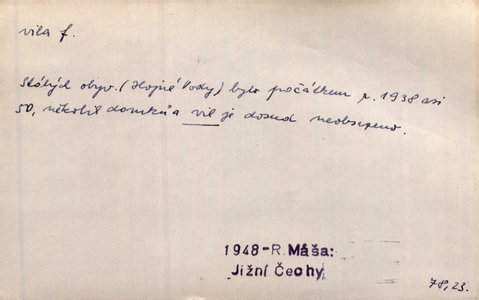 vila f.
Stálých obyv. (Hojné Vody) bylo počátkem r. 1938 asi
50, několik domků a vil je dosud neobsazeno.
1948-R. Máša:
Jižní Čechy
78,23.